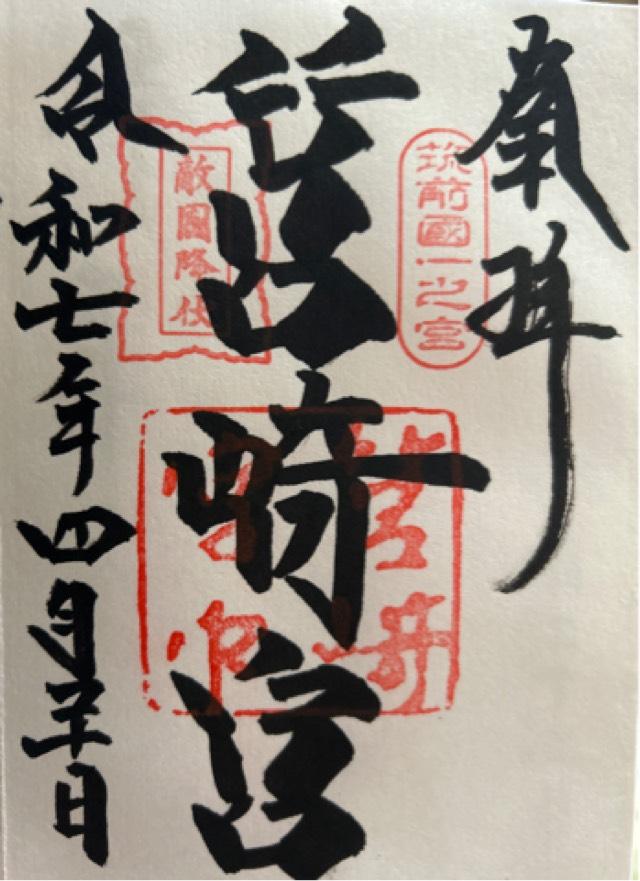 奉拝
筑前國一之宮
筥崎宮
敵國降伏
令和七年四月二十日